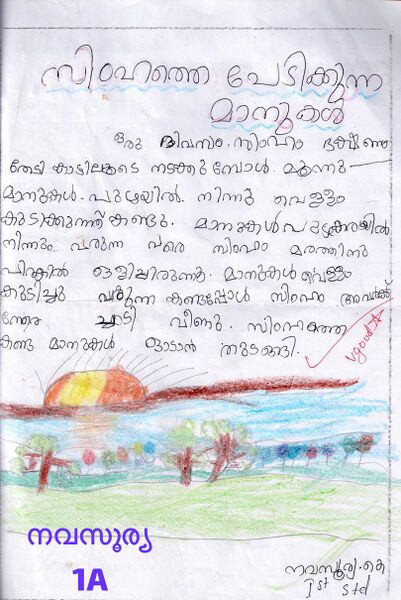 സിംഹത്തെ പേടിക്കുന്ന
മാനുകൾ
ഒരു ദിവസം സിംഹം ഭക്ഷണം
തേടി കാട്ടിലൂടെ നടക്കുമ്പോൾ. മൂന്നു
മാനുകൾ. പുഴയിൽ. നിന്നു വെള്ളം
കുടിക്കുന്നത് കണ്ടു. മാനുകൾ പുഴക്കരയിൽ
നിന്നും വരുന്ന വരെ സിംഹം മരത്തിനു
പിറകിൽ ഒളിച്ചിരുന്നു. മാനുകൾ വെള്ളം
കുടിച്ചു വരുന്ന കണ്ടപ്പോൾ സിംഹം അവർക്കു
നേരെ ചാടി വീണു. സിംഹത്തെ
കണ്ട മാനുകൾ ഓടാൻ തുടങ്ങി.
vgood
നവസൂര്യ
1A
നവസൂര്യ. കെ
Ist Std